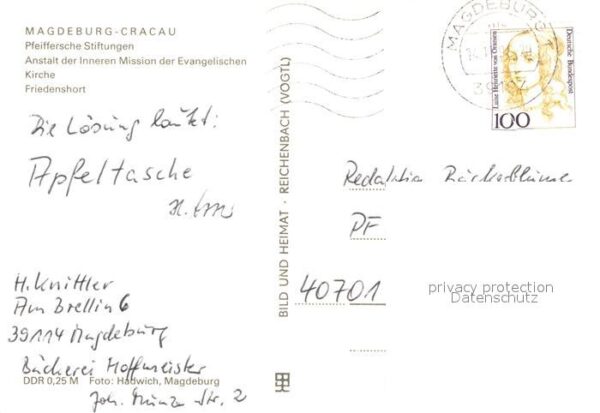 MAGDEBURG-CRACAU
Pfeiffersche Stiftungen
Anstalt der Inneren Mission der Evangelischen
Kirche
Friedenshort
Die Lösung lautet:
Apfeltasche
H. Knittler
Am Brellin 6
39114 Magdeburg
Bäckerei Hoffmeister
Joh. Münze Str. 2
DDR 0,25 M Foto: Hadwich, Magdeburg
BILD UND HEIMAT · REICHENBACH (VOGTL)
MAGDEBURG 1
Luise Henriette von Oranien
Deutsche Bundespost
100
Redaktion Bäckerblume
PF
40701
privacy protection
Datenschutz